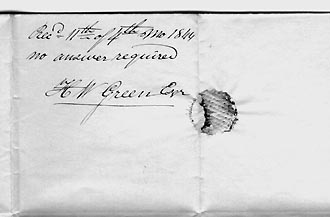 Recd. 11th of 4th Mo 1844
no answer required
H W Green Esqr